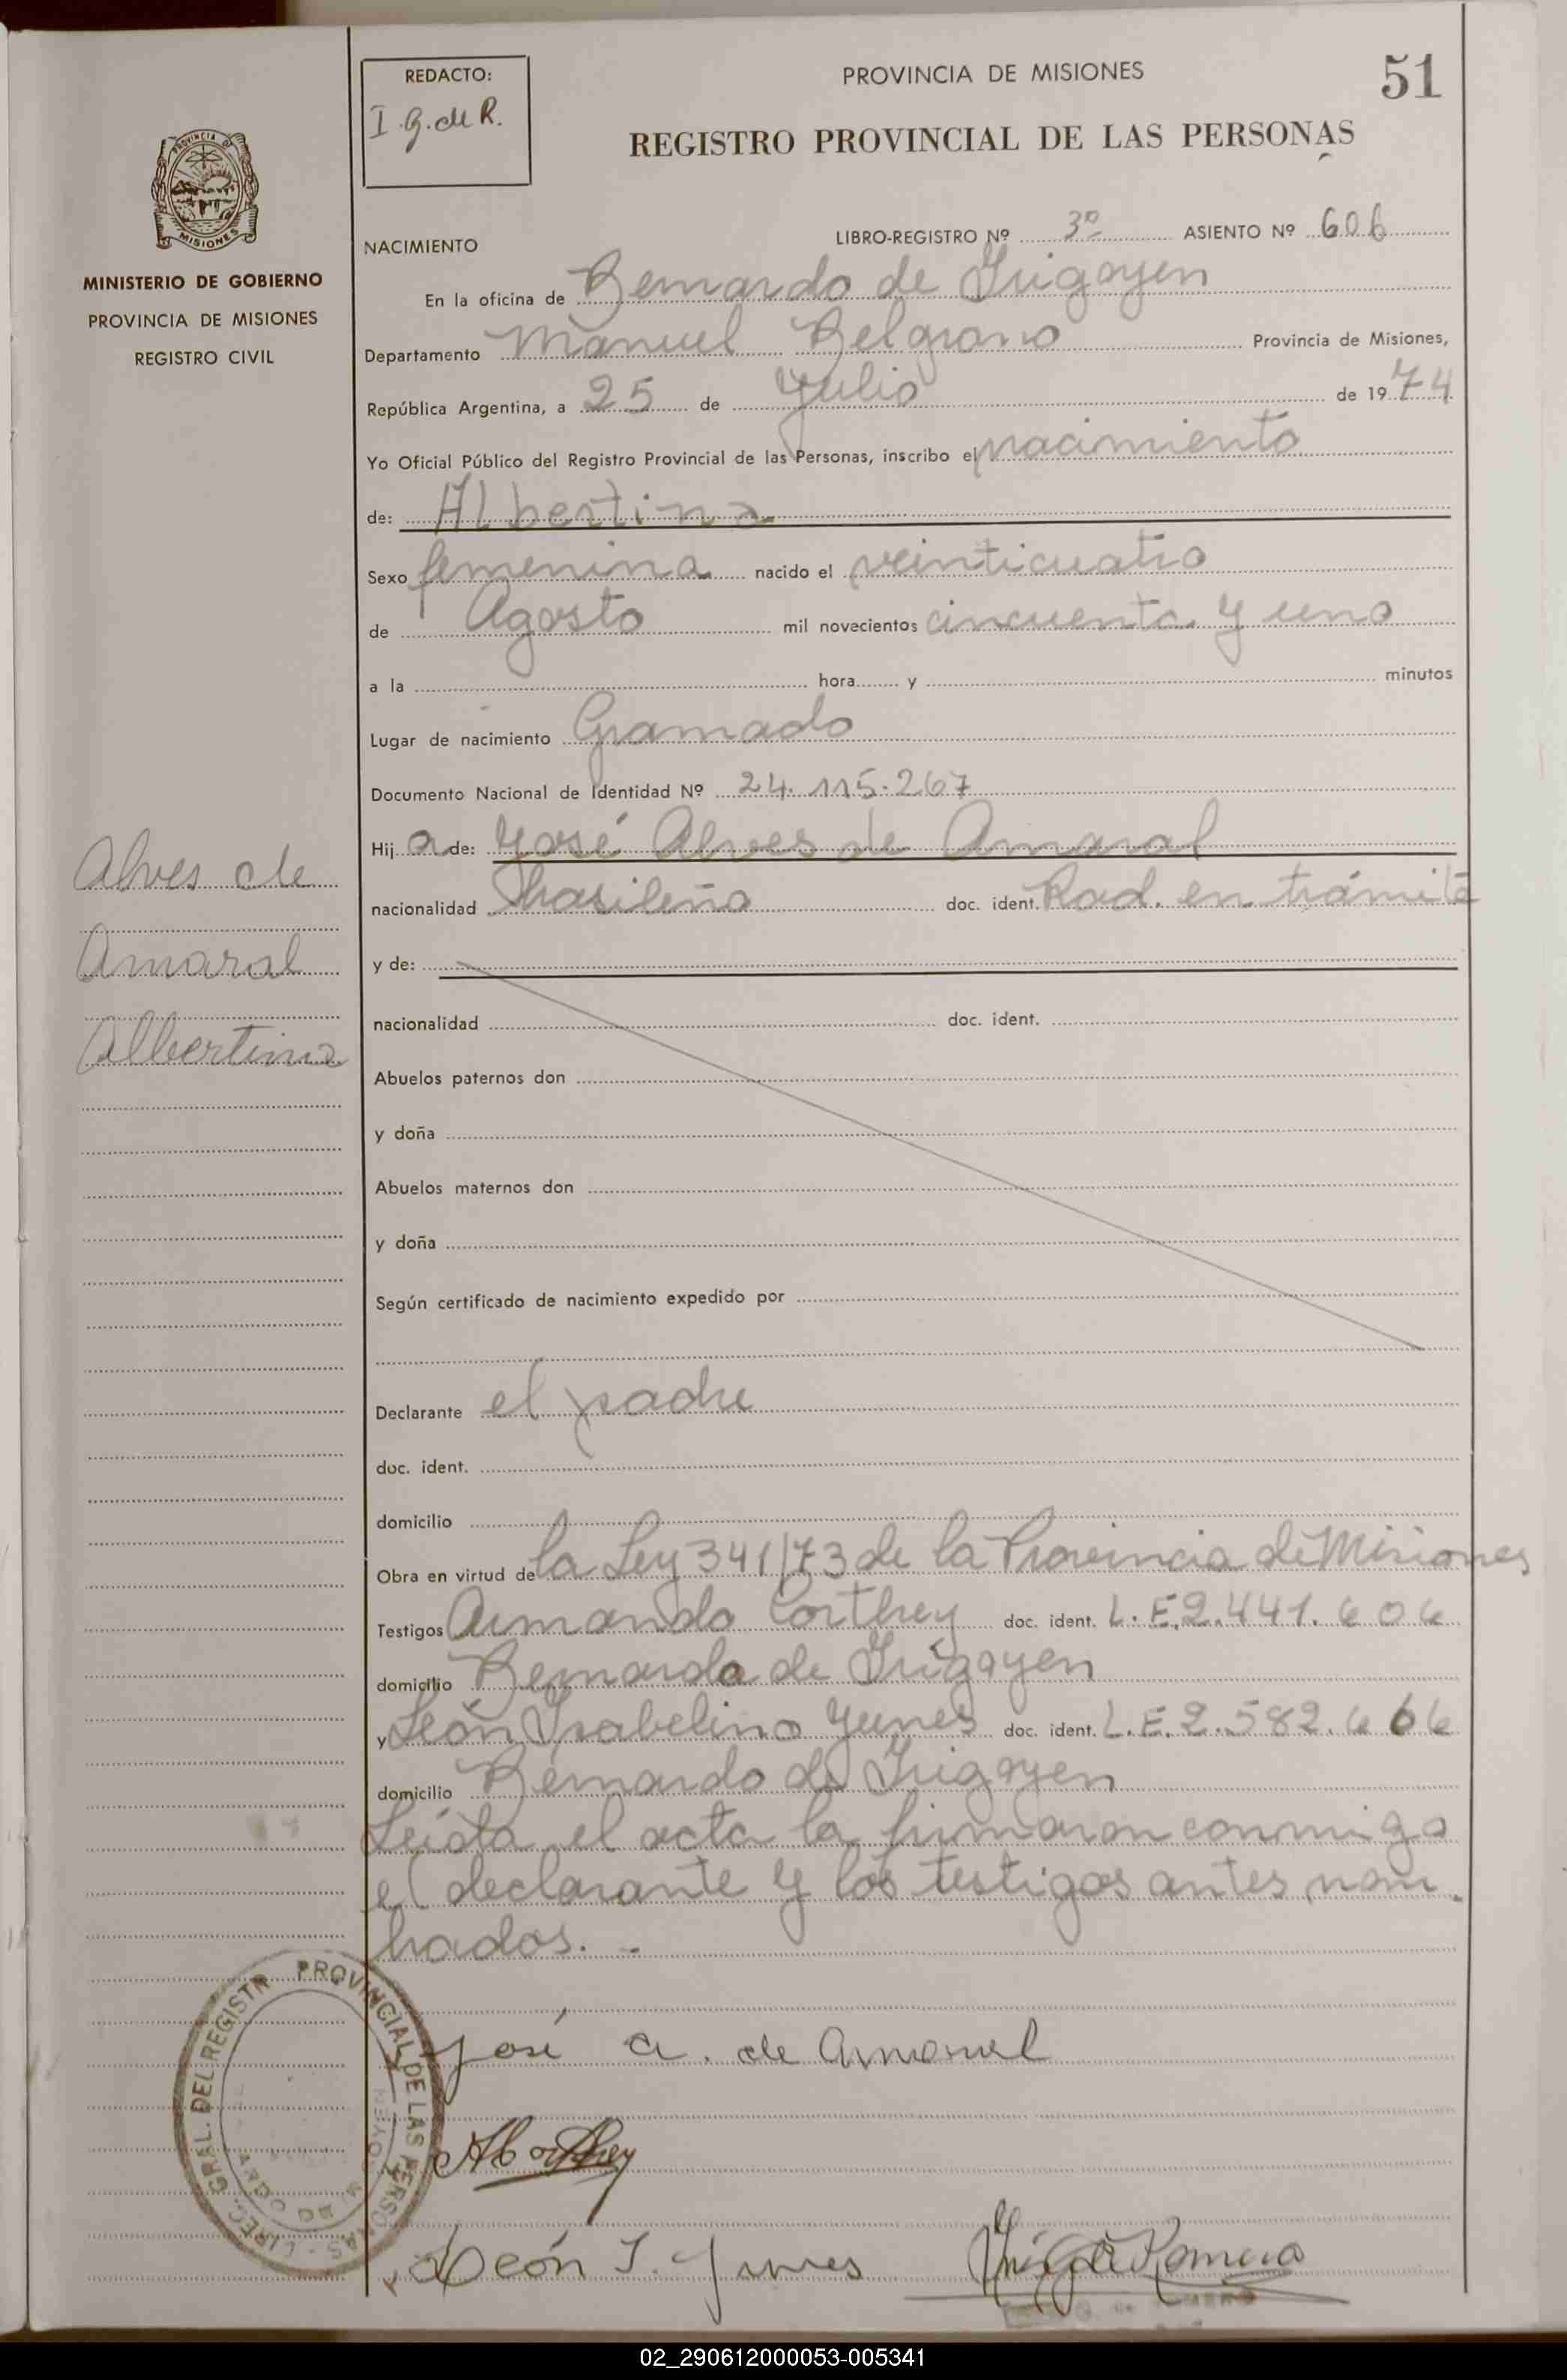 REDACTO:
I.G. de R.
PROVINCIA DE MISIONES
51
REGISTRO PROVINCIAL DE LAS PERSONAS
PROVINCIA DE
MISIONES
MINISTERIO DE GOBIERNO
PROVINCIA DE MISIONES
REGISTRO CIVIL
NACIMIENTO
LIBRO-REGISTRO Nº 3º ASIENTO Nº 606
En la oficina de Bernardo de Irigoyen
Departamento Manuel Belgrano Provincia de Misiones,
República Argentina, a 25 de Julio de 1974
Yo Oficial Público del Registro Provincial de las Personas, inscribo el nacimiento
de: Albertina
Sexo femenina nacido el veinticuatro
de Agosto mil novecientos cincuenta y uno
a la hora y minutos
Lugar de nacimiento Gramado
Documento Nacional de Identidad Nº 24.115.267
Hija de: José Alves de Amaral
nacionalidad brasileña doc. ident. Rad. en trámite
y de:
nacionalidad doc. ident.
Abuelos paternos don
y doña
Abuelos maternos don
y doña
Según certificado de nacimiento expedido por
Declarante el padre
doc. ident.
domicilio
Obra en virtud de la Ley 341/73 de la Provincia de Misiones
Testigos Armando Corthey doc. ident. L.E. 2.441.606
domicilio Bernardo de Irigoyen
y León Isabelino Yunes doc. ident. L.E. 2.582.666
domicilio Bernardo de Irigoyen
Leída el acta la firmaron conmigo
el declarante y los testigos antes nom
brados. -
Alves de
Amaral
Albertina
José A. de Amaral
ACorthey
León I. Yunes
DIREC. GRAL. DEL REGISTR PROVINCIAL DE LAS PERSONAS
02_290612000053-005341